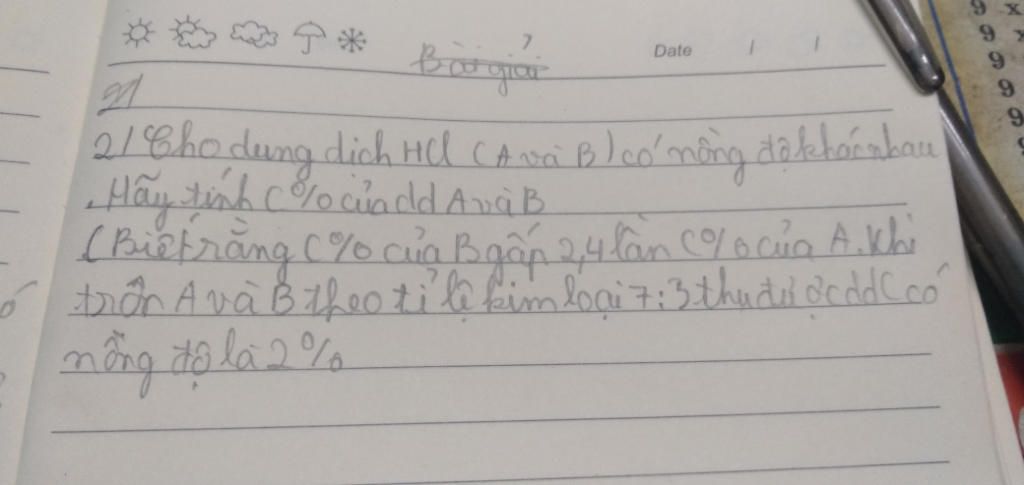 Date / /
Bài giải
2/
2/ Cho dung dịch HCl (A và B) có nồng độ khác nhau
. Hãy tính C% của dd A và B
(Biết rằng C% của B gấp 2,4 lần C% của A. Khi
trộn A và B theo tỉ lệ kim loại 7:3 thu được dd C có
nồng độ là 2%
9 x
9 x
9
9
9